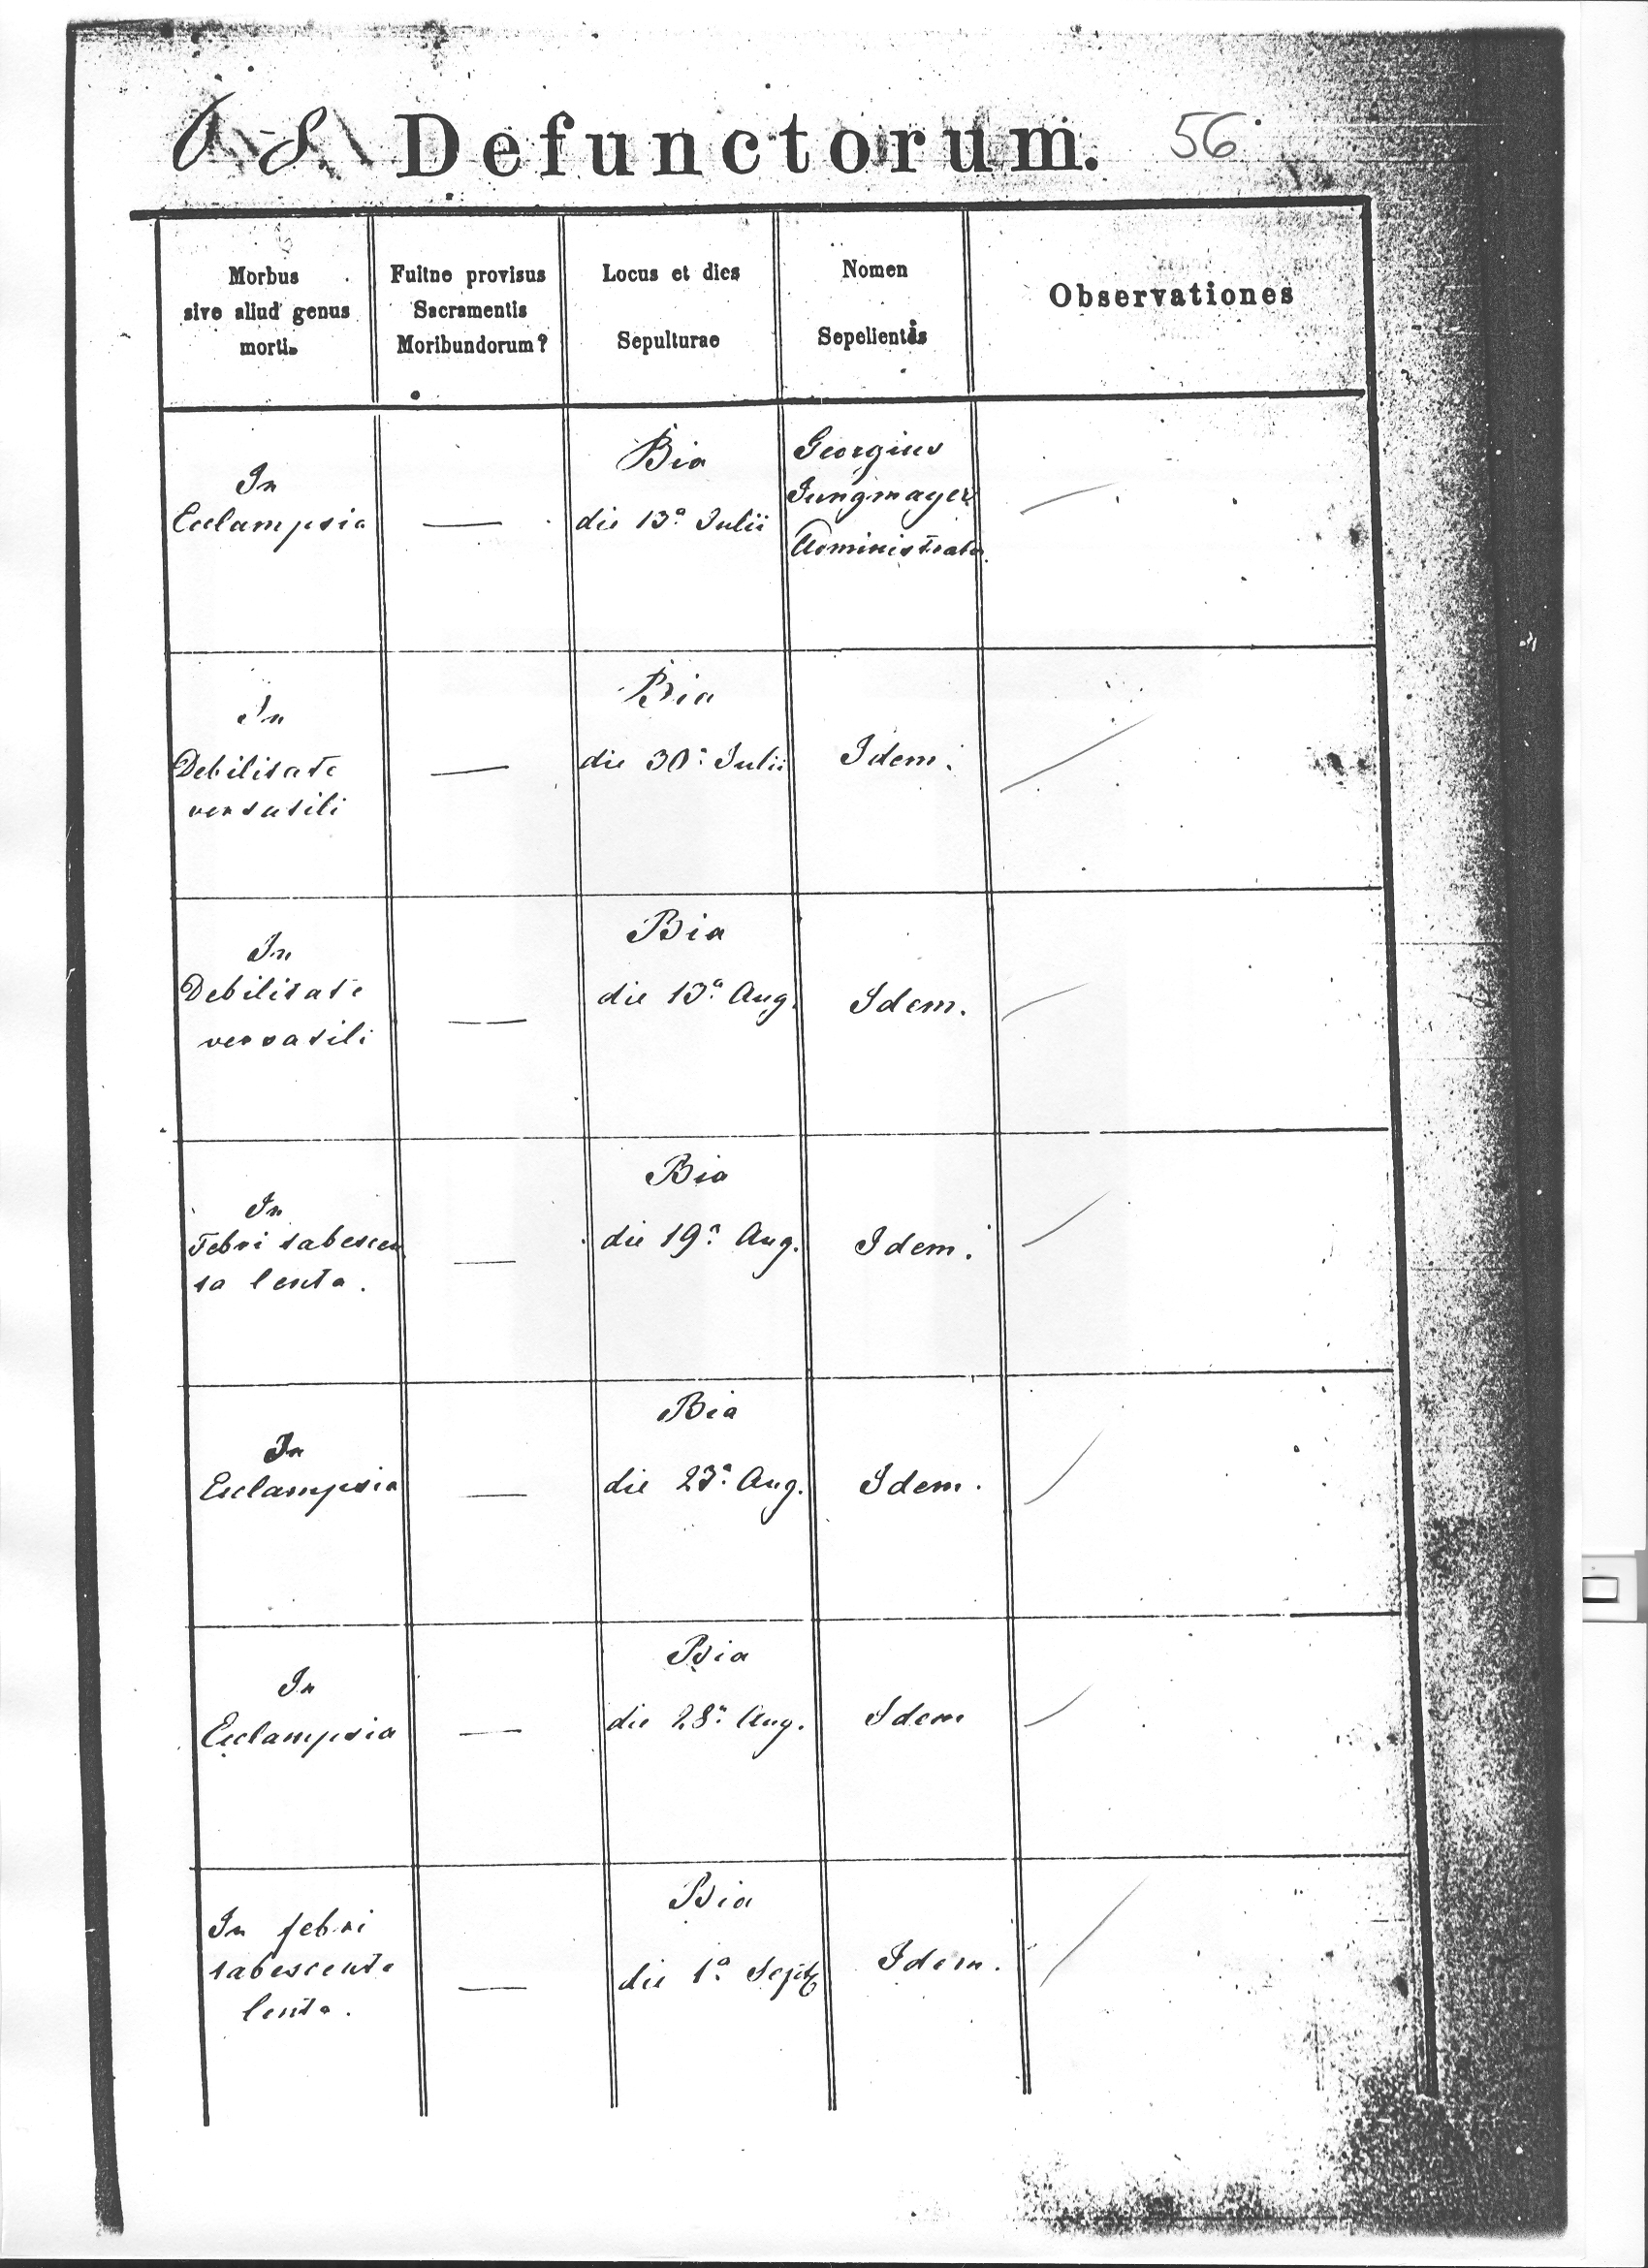 Defunctorum. 56
Morbus
sive aliud genus
mortis
Fuitne provisus
Sacramentis
Moribundorum?
Locus et dies
Sepulturae
Nomen
Sepelientis
Observationes
In
Ecclampsia
—
Bia
die 13ª Julii
Georgius
Jungmayer
Administrator
In
Debilitate
versatili
—
Bia
die 30ª Julii
Idem.
In
Debilitate
versatili
—
Bia
die 13ª Aug.
Idem.
In
Febri tabescen
ta lenta.
—
Bia
die 19ª Aug.
Idem.
In
Ecclampsia
—
Bia
die 23ª Aug.
Idem.
In
Ecclampsia
—
Bia
die 28ª Aug.
Idem
In febri
tabescente
lenta.
—
Bia
die 1ª Sept
Idem.